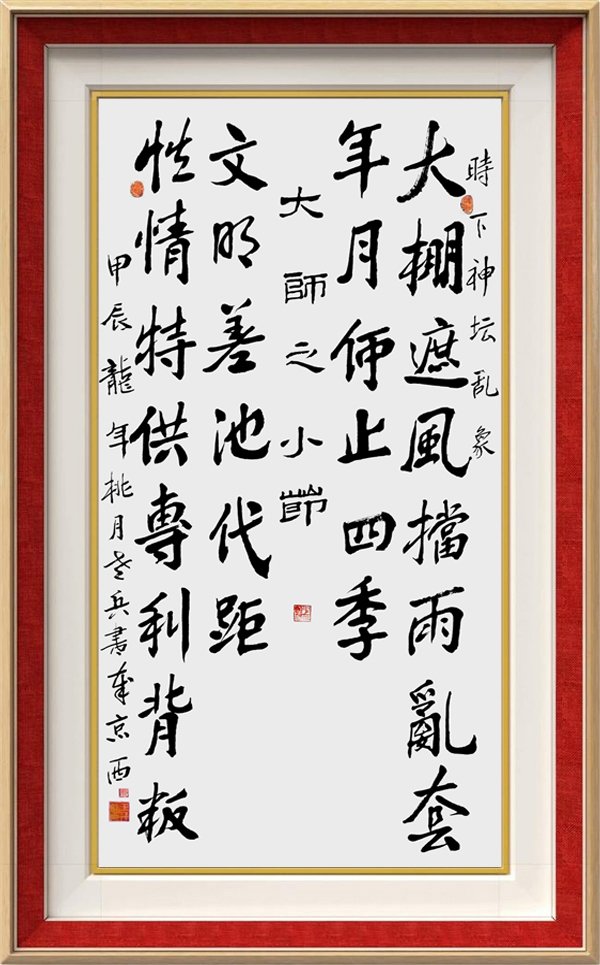 時下神坛乱象
大棚遮風擋雨亂套
年月停止四季
大師之小節
文明差池代距
性情特供專利背叛
甲辰龍年桃月老兵書京西